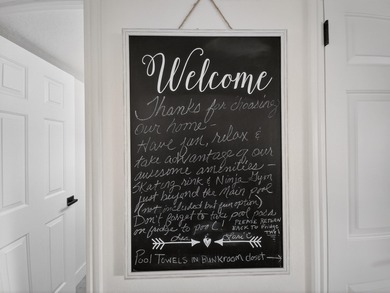 Welcome
Thanks for choosing
our home -
Have fun, relax &
take advantage of our
awesome amenities -
Skating rink & Ninja Gym
just beyond the main pool
(not included but fun option)
Don't forget to take pool passes
on fridge to pool! PLEASE RETURN
BACK TO FRIDGE
Pool TOWELS IN BUNKROOM closet →